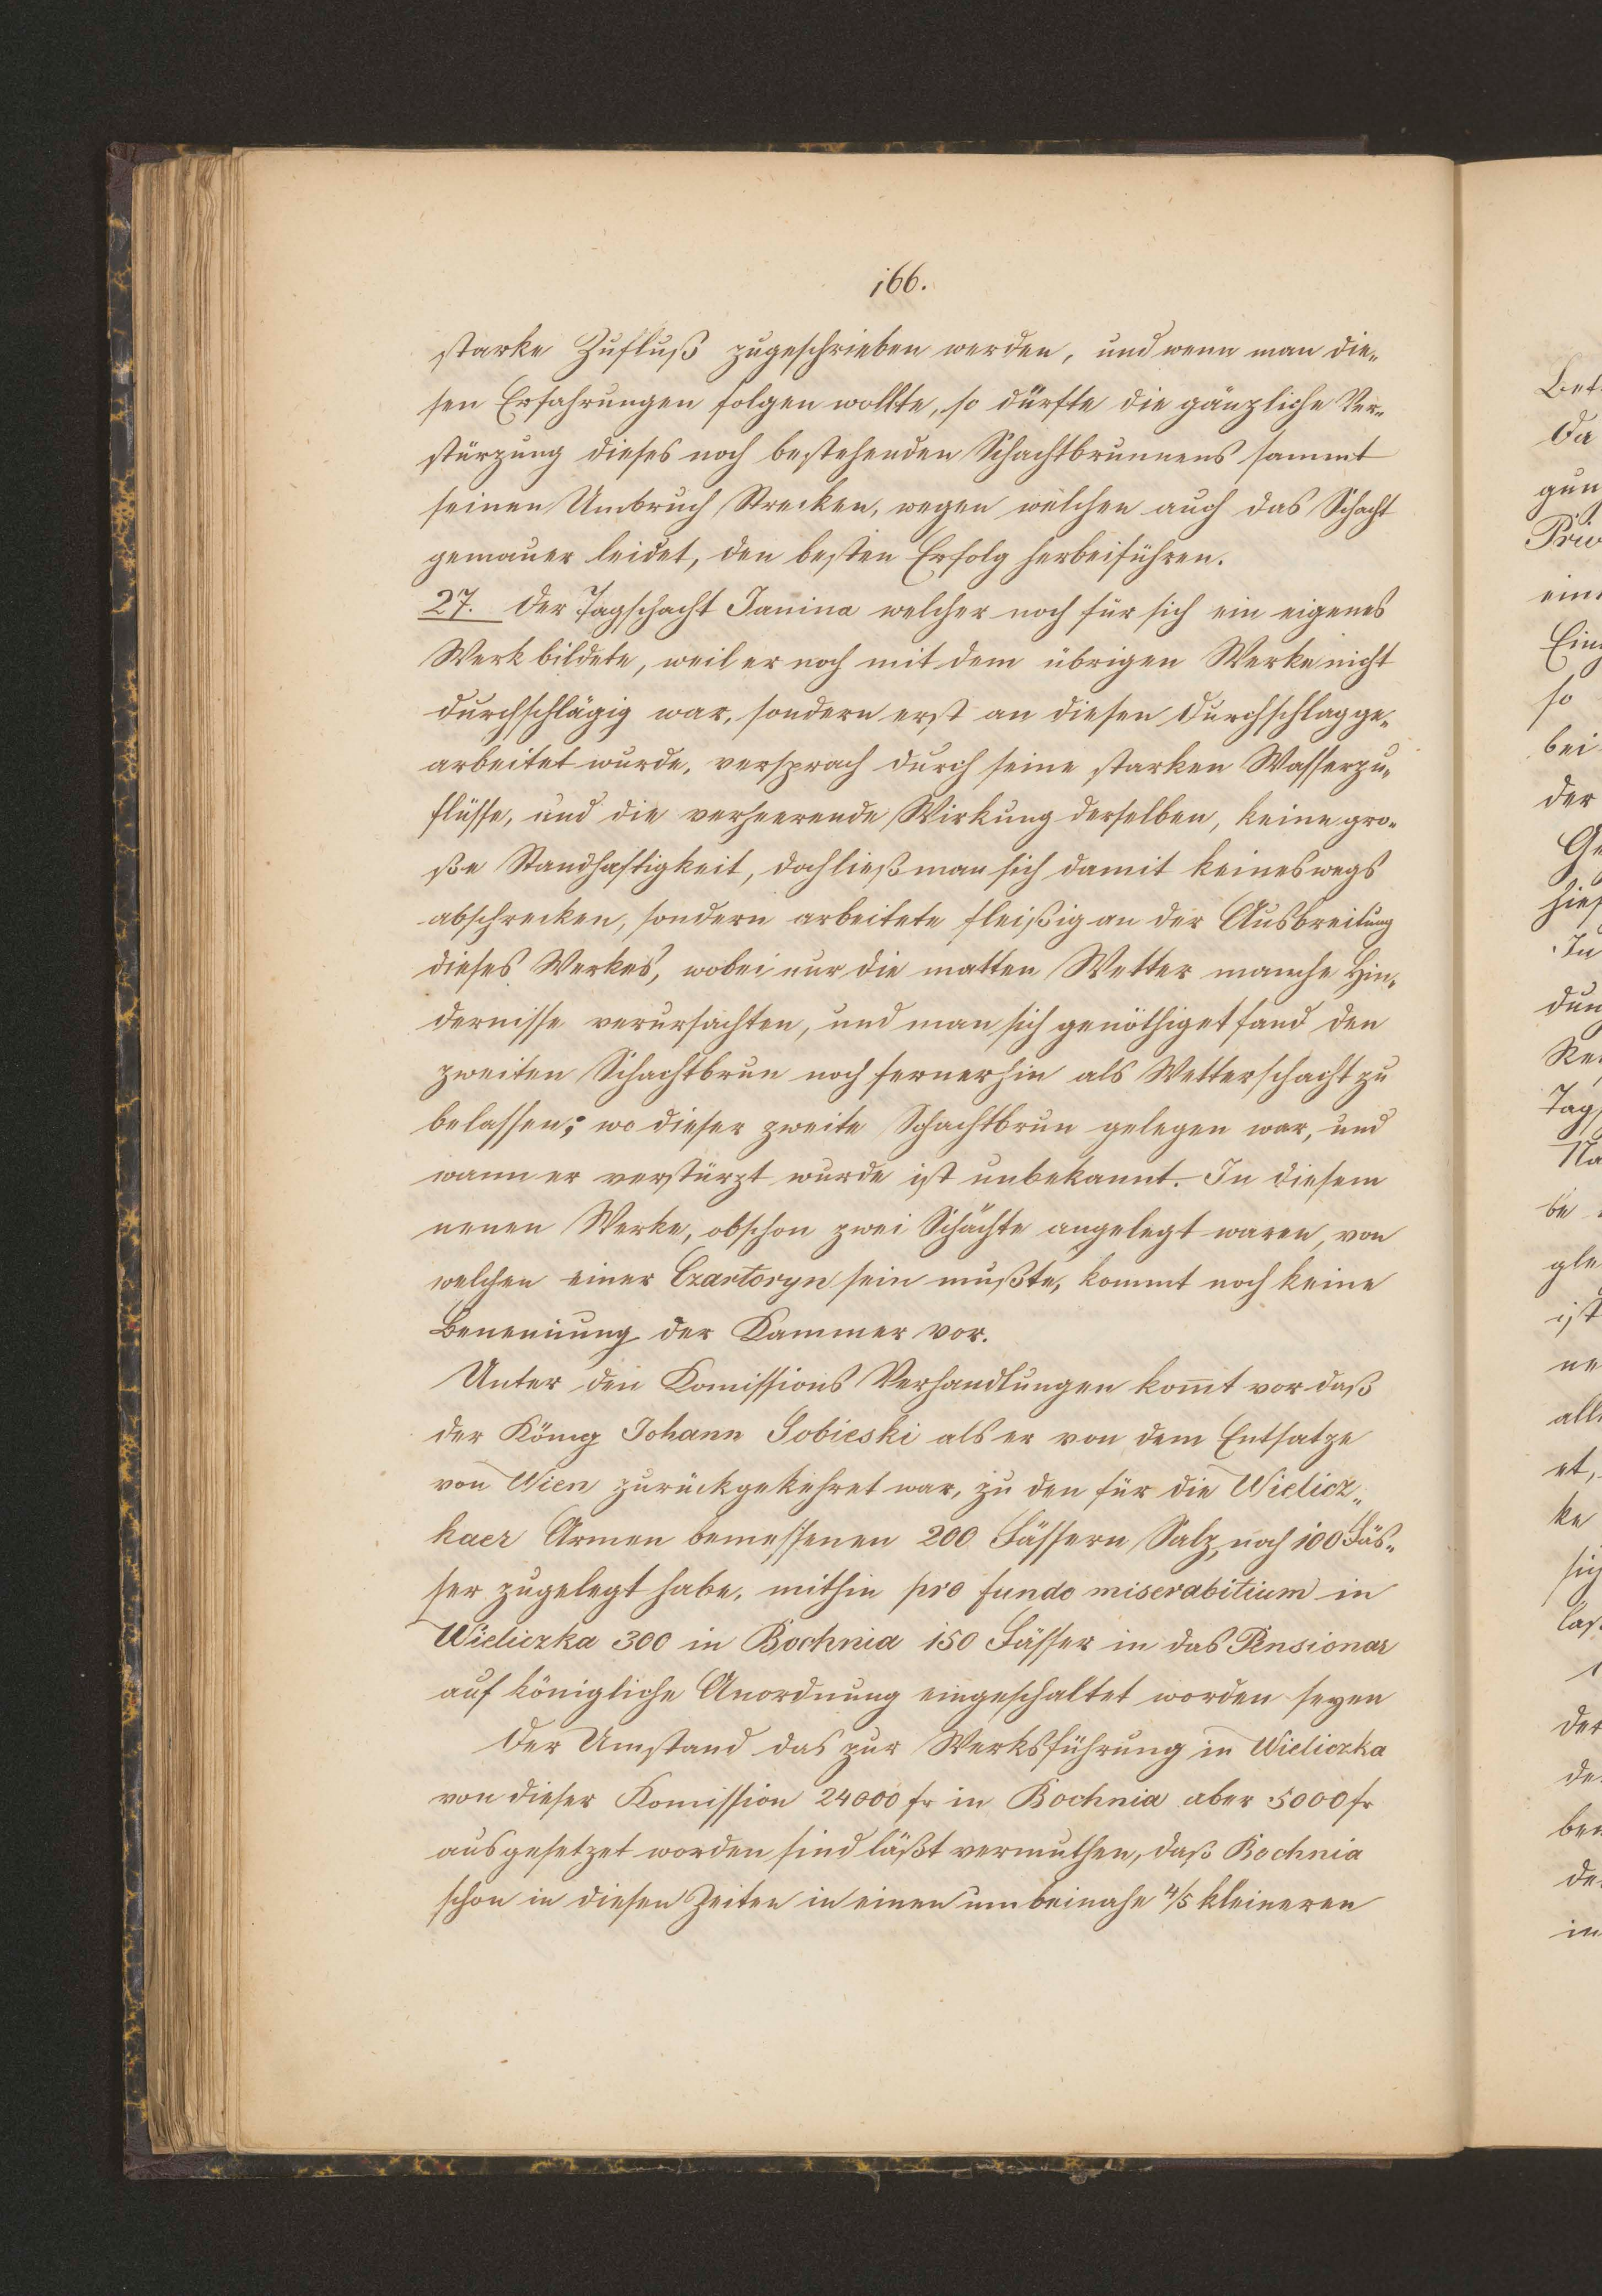 166.
starke Zufluß zugeschrieben werden, und wenn man die„
sen Erfahrungen folgen wollte, so dürfte die gänzliche Ver„
stürzung dieses noch bestehenden Schachtbrunnens sammt
seinen Umbruch Strecken, wegen welchen auch das Schacht
gemauer leidet, den besten Erfolg herbeiführen.
27. Der Tagschacht Janina welcher noch für sich ein eigenes
Werk bildete, weil er noch mit dem übrigen Werke nicht
durchschlägig war, sondern erst an diesen Durchschlag ge„
arbeitet wurde, versprach durch seine starken Wasserzu„
flüsse, und die verheerende Wirkung derselben, keine gro„
ße Standhaftigkeit, doch ließ man sich damit keineswegs
abschrecken, sondern arbeitete fleißig an der Ausbreitung
dieses Werkes, wobei nur die matten Wetter manche Hin„
dernisse verursachten, und man sich genöthiget fand den
zweiten Schachtbrun noch fernerhin als Wetterschacht zu
belassen; wo dieser zweite Schachtbrun gelegen war, und
wann er verstürzt wurde ist unbekannt. In diesem
neuen Werke, obschon zwei Schächte angelegt waren, von
welchen einer Czartoryn sein mußte, kommt noch keine
Benennung der Kammer vor.
Unter den Komissions Verhandlungen komt vor daß
der König Johann Sobieski als er von dem Entsatze
von Wien zurückgekehret war, zu den für die Wielicz„
kaer Armen bemessenen 200 Fässern Salz, noch 100 Fäs„
ser zugelegt habe, mithin pro fundo miserabitium in
Wieliczka 300 in Bochnia 150 Fässer in das Pensionar
auf königliche Anordnung eingeschaltet worden seyen
Der Umstand das zur Werksführung in Wieliczka
von dieser Komission 24000 fr in Bochnia aber 5000 fr
ausgesetzet worden sind läßt vermuthen, daß Bochnia
schon in diesen Zeiten in einen um beinahe 4/5 kleineren